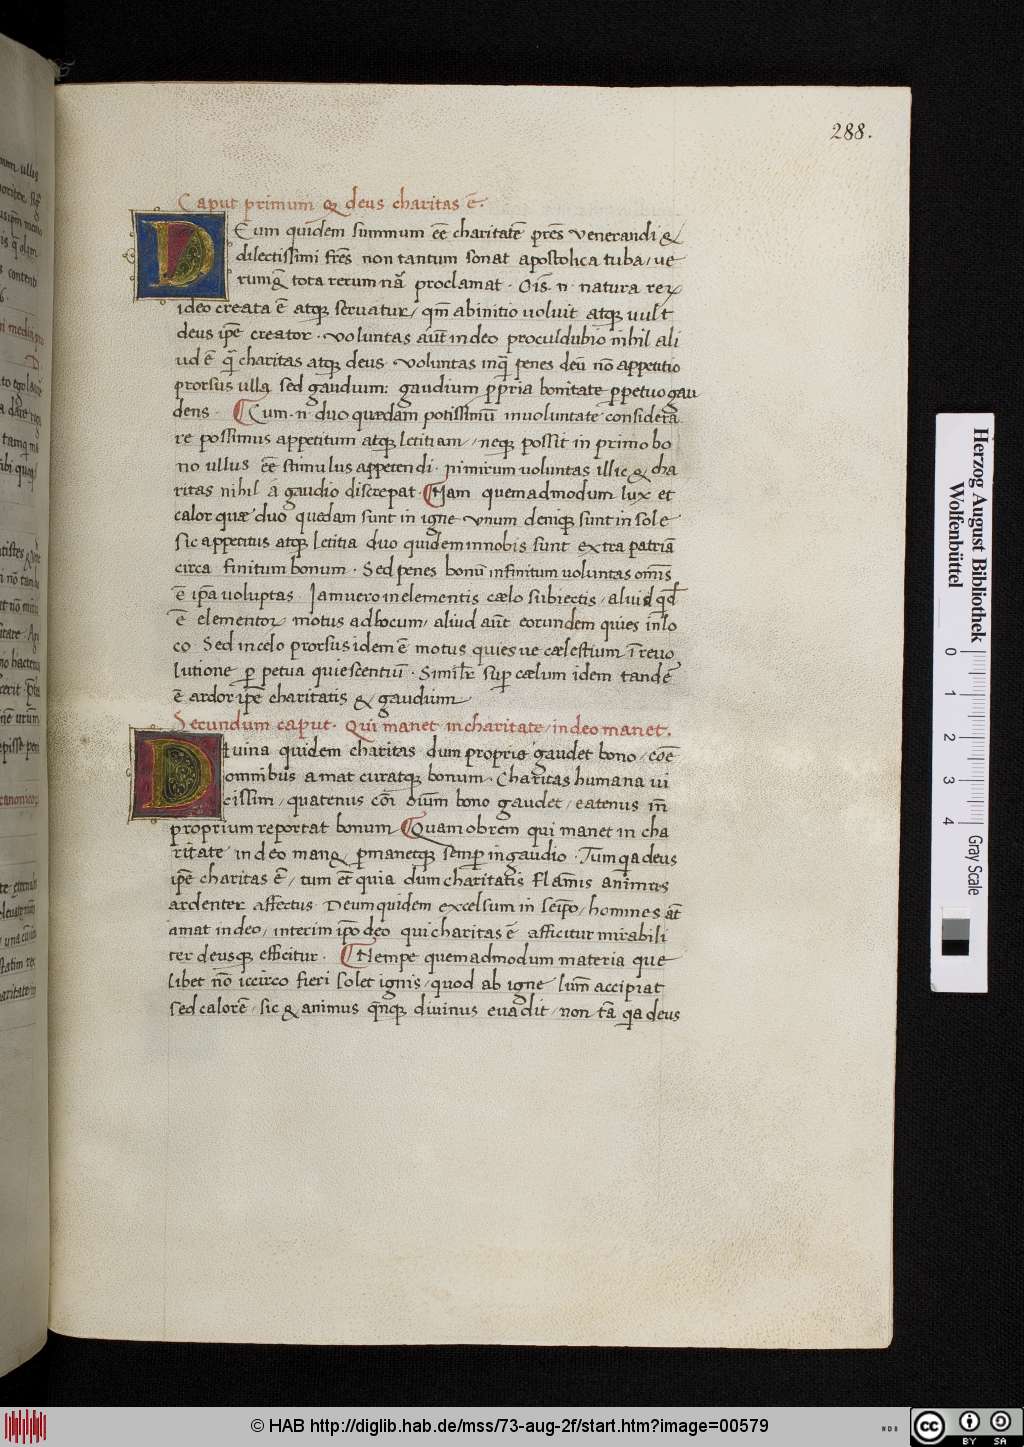 288.
Caput primum q̨ deus charitas ē.
DEum quidem summum eē charitatē pr̄es venerandi &
dilectissimi fr̄es non tantum sonat apostolica tuba / ue
rumq̄ tota rerum nā proclamat . Oīs .n. natura reꝝ
ideo creata ē atq; seruatur / qm̄ abinitio uoluit atq; uult
deus ip̄e creator . voluntas aūt indeo proculdubio nihil ali
ud ē q̄ charitas atq; deus . voluntas inq̄ penes deū nō appetitio
prorsus ulla sed gaudium: gaudium ꝓpria bonitate ꝑpetuo gau
dens . Cum .n. duo quædam potissimū inuoluntate considera
re possimus appetitum atq; letitiam / neq; possit in primo bo
no ullus eē stimulus appetendi . nimirum uoluntas illic & cha
ritas nihil á gaudio discrepat . Nam quemadmodum lux et
calor quæ duo quædam sunt in igne vnum deniq; sunt in sole
sic appetitus atq; letitia duo quidem innobis sunt extra patriā
circa finitum bonum . Sed penes bonū infinitum uoluntas om̄is
ē ip̄a uoluptas . Iamuero inelementis cælo subiectis / aliud qd̄
ē elementoꝝ motus adlocum / aliud aūt eorundem quies inlo
co . Sed incelo prorsus idem ē motus quies ue cælestium ī reuo
lutione ꝑ petua quiescentiū . Simil̄r sup̄ cælum idem tandē
ē ardor ip̄e charitatis & gaudium
Secundum caput . Qui manet incharitate / indeo manet.
DIuina quidem charitas dum proprio gaudet bono / coē
omnibus amat curatq; bonum . Charitas humana ui
cissim / quatenus cōi oīum bono gaudet / eatenus īn
proprium reportat bonum Quamobrem qui manet in cha
ritate indeo manꝫ ꝑmanetq; semꝑ in gaudio . Tum qa deus
ip̄e charitas ē / tum et̄ quia dum charitatis flāmis animus
ardenter affectus Deum quidem excelsum in seip̄o / homines at̄
amat indeo / interim ip̄o deo qui charitas ē afficitur mirabili
ter deusq; efficitur . Nempe quemadmodum materia que
libet nō iccirco fieri solet ignis / quod ab igne lum̄ accipiat
sed calorē / sic & animus q̄ncq; diuinus euadit / non tā qa deus
Herzog August Bibliothek
Wolfenbüttel
0 1 2 3 4
Gray Scale
© HAB http://diglib.hab.de/mss/73-aug-2f/start.htm?image=00579
WDB
cc BY SA